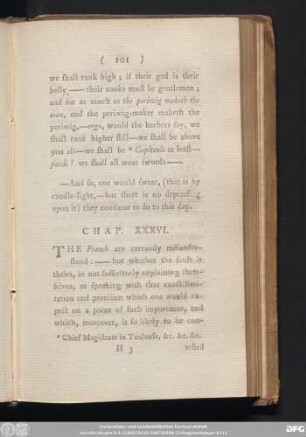 ( 101 )
we ſhall rank high; if their god is their
belly,—— their cooks muſt be gentlemen;
and for as much as the periwig maketh the
man, and the periwig-maker maketh the
periwig,—ergo, would the barbers ſay, we
ſhall rank higher ſtill—we ſhall be above
you all—we ſhall be * Capitouls at leaſt—
pardi! we ſhall all wear ſwords——
—And ſo, one would ſwear, (that is by
candle-light,—but there is no depending
upon it) they continue to do to this day.
CHAP. XXXVI.
THE French are certainly miſunder-
ſtood:——but whether the fault is
theirs, in not ſufficiently explaining them-
ſelves, or ſpeaking with that exact limi-
tation and preciſion which one would ex-
pect on a point of ſuch importance, and
which, moreover, is ſo likely to be con-
* Chief Magiſtrate in Toulouſe, &c. &c. &c.
H 3 teſted